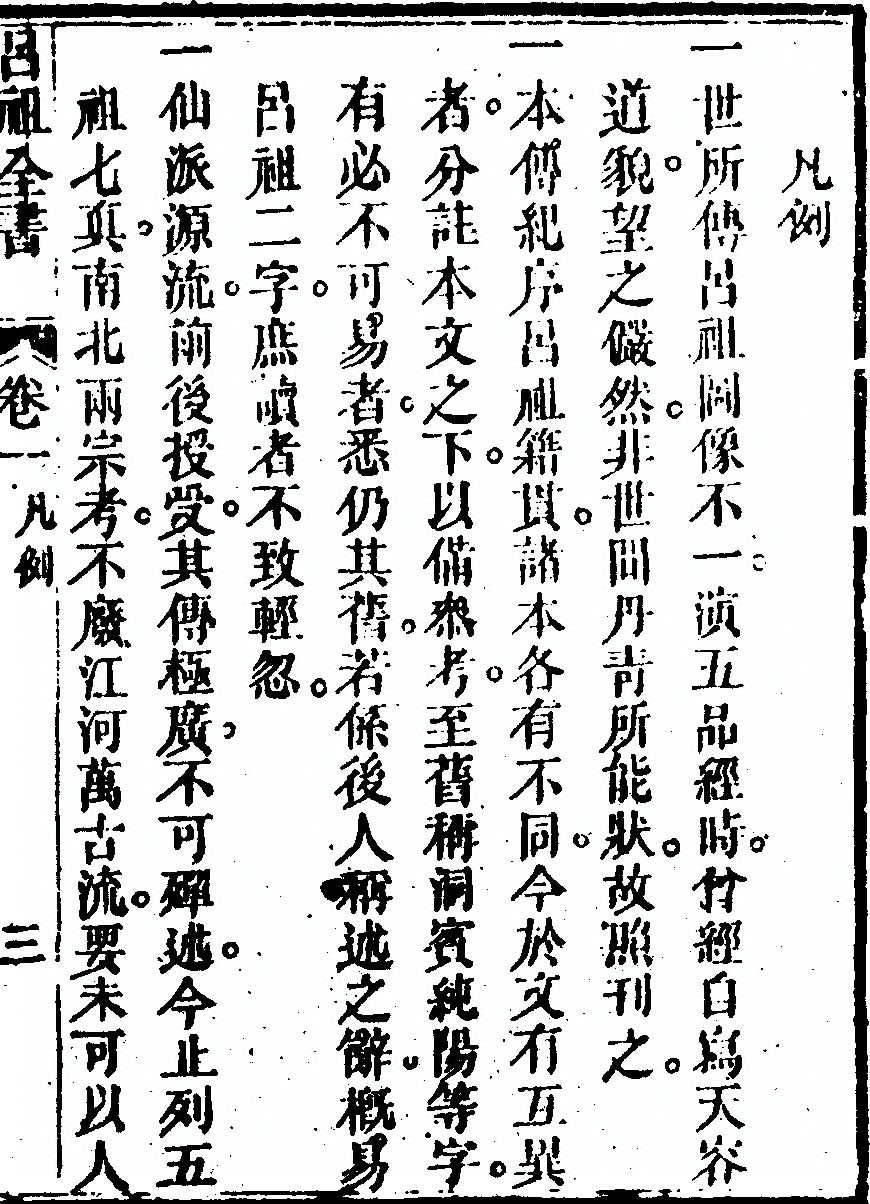 凡例
一世所傳呂祖圖像不一。演五品經時。曾經自寫天容
道貌。望之儼然。非世間丹青所能狀。故照刊之。
一本傳紀序呂祖籍貫。諸本各有不同。今於文有互異
者。分註本文之下。以備參考。至舊稱洞賓純陽等字。
有必不可易者。悉仍其舊。若係後人稱述之辭。概易
呂祖二字。庶讀者不致輕忽。
一仙派源流。前後授受。其傳極廣。不可殫述。今止列五
祖七真。南北兩宗考。不廢江河萬古流。要未可以人
呂祖全書 卷一 凡例 三